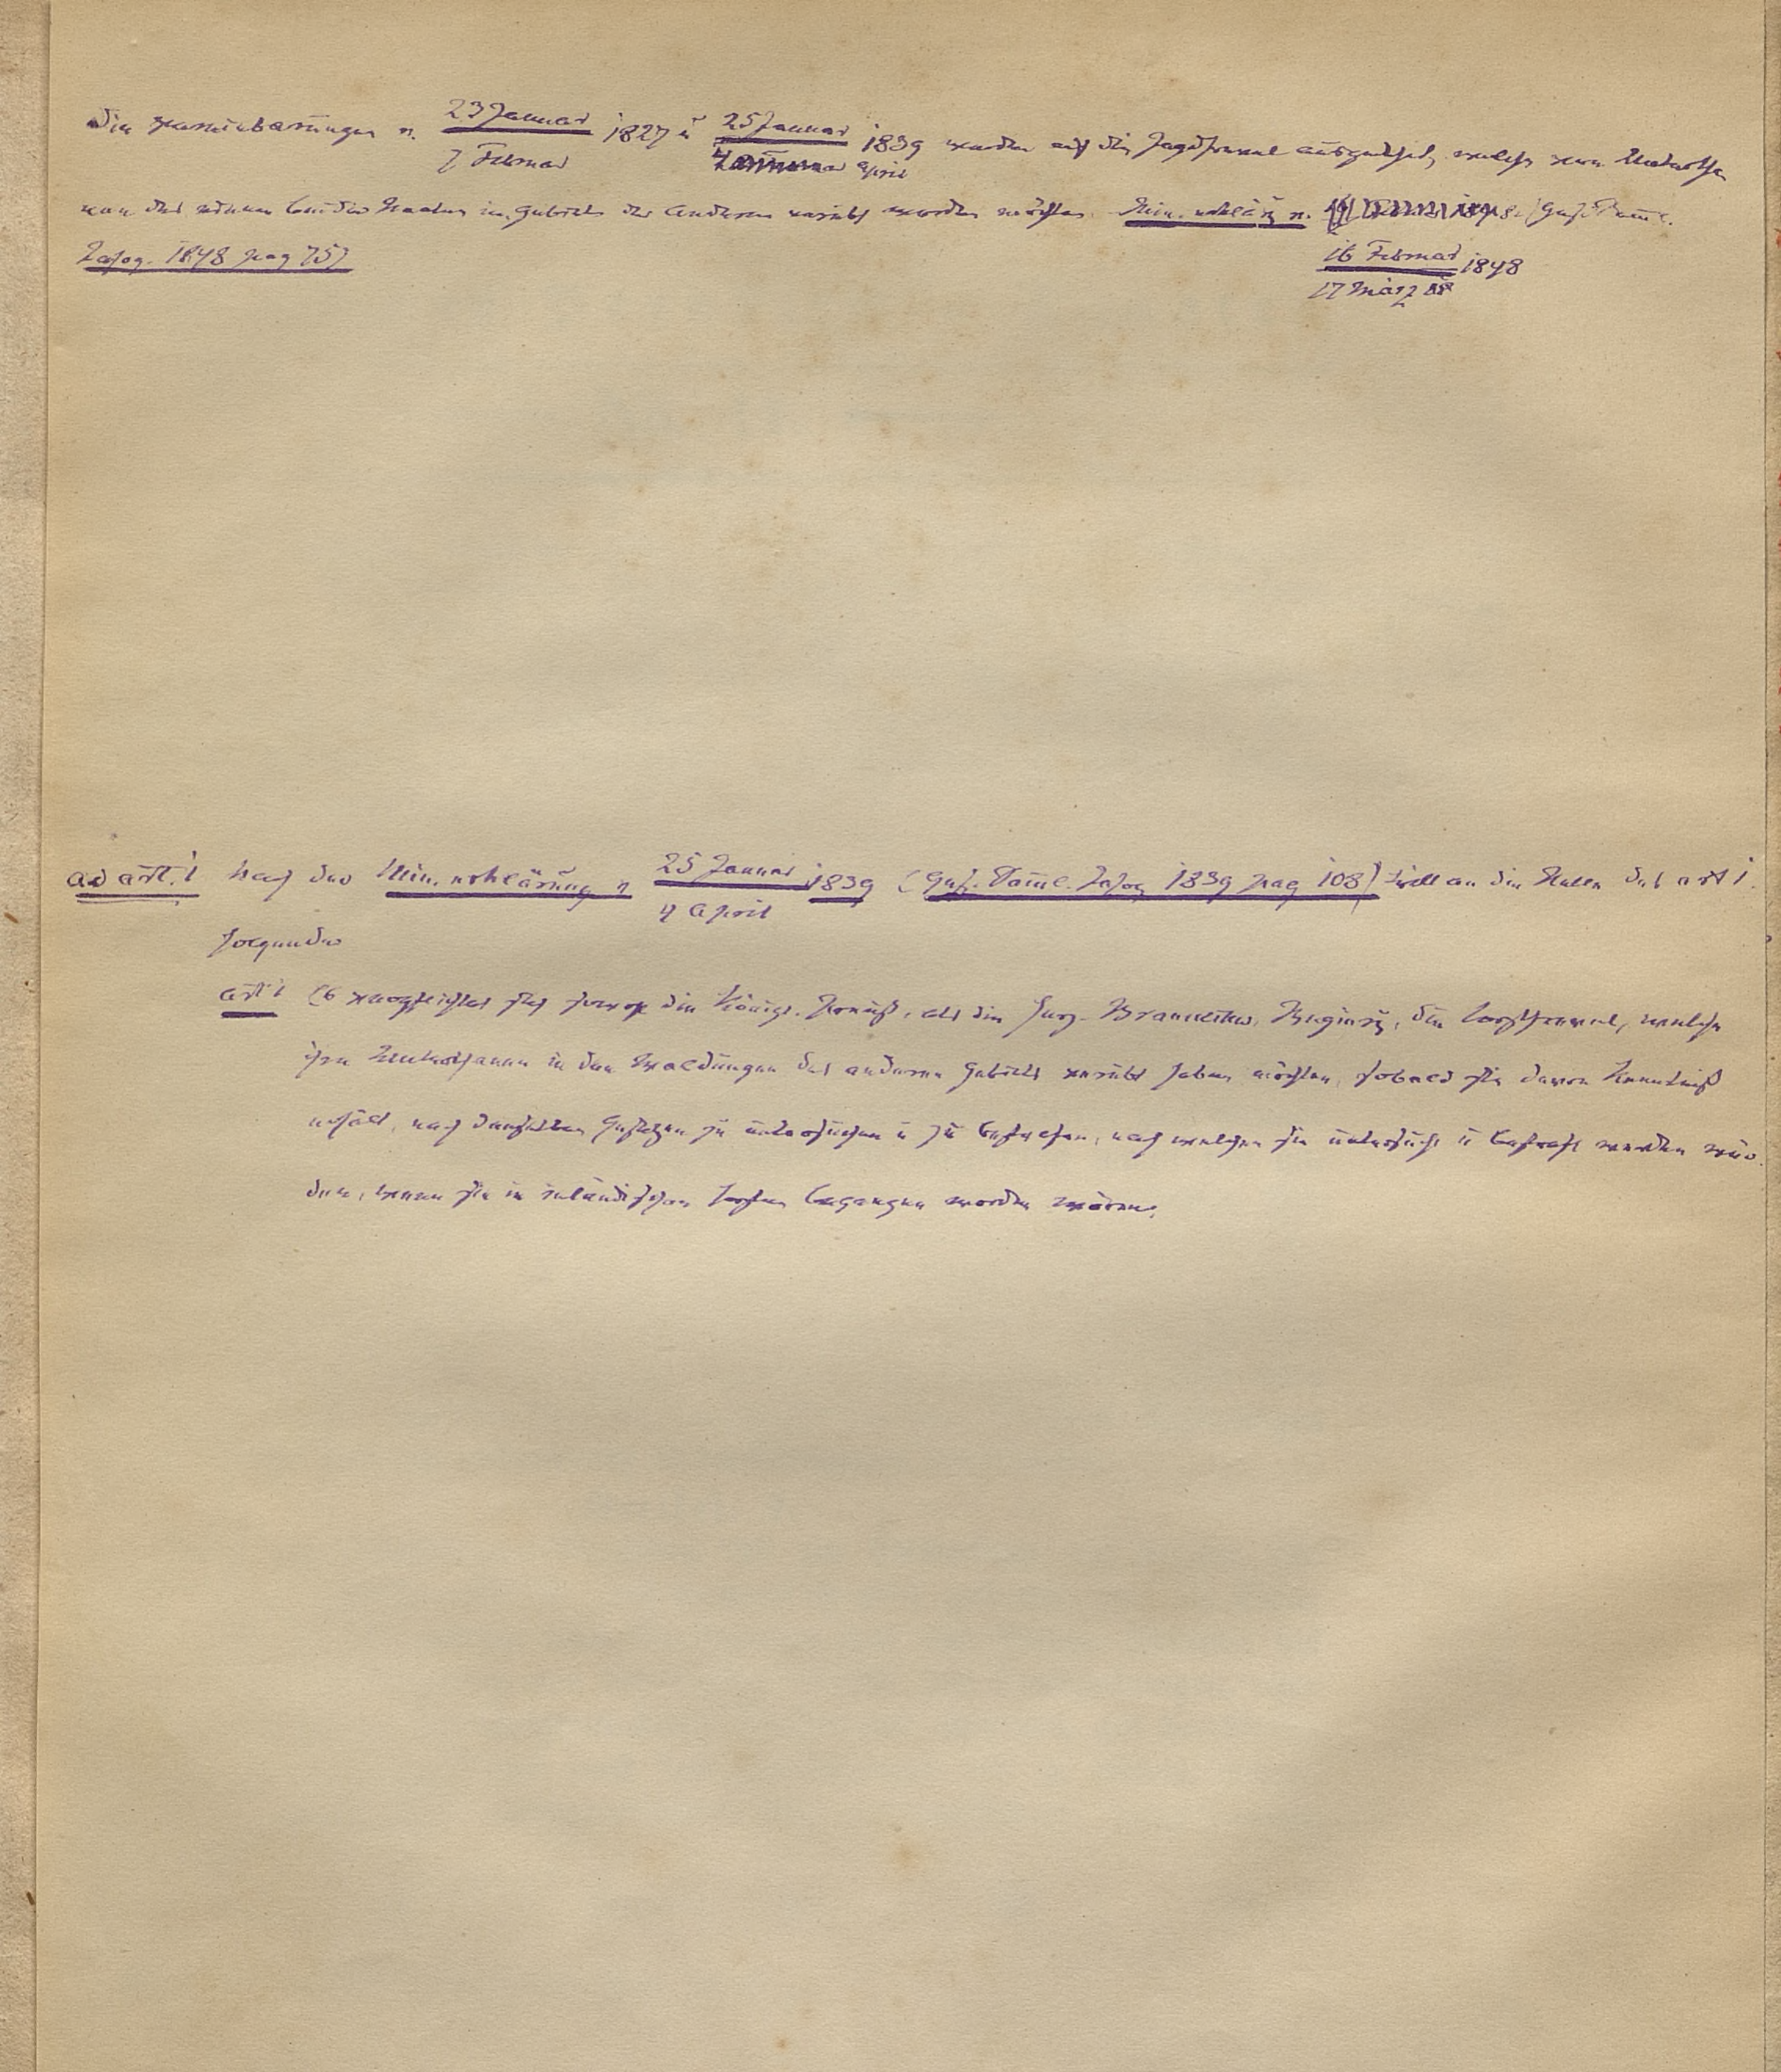 Die Vereinbarungen v. 23 Januar / 7 Februar 1827 u 25 Januar / 4 April 1839 werden auf die Jagdfrevel ausgedehnt, welche von Unterthanen
des einen beider Staaten im Gebiete des Anderen verübt werden möchten. Min. erklärg v. (Ges. Samml.
Jahrg. 1848 pag 75)
16 Februar / 17 März 1848
ad art. 1 Nach der Min. erklärung v 25 Januar / 4 April 1839 (Ges. Samml. Jahrg 1839 pag 108) tritt an die Stelle des art 1.
folgender
art 1 Es verpflichtet sich sowohl die Königl. Preuß., als die Herz. Braunschw. Regierg, die Forstfrevel, welche
ihre Unterthanen in den Waldungen des anderen Gebiets verübt haben möchten, sobald sie davon Kenntniß
erhält, nach denselben Gesetzen zu untersuchen u zu bestrafen, nach welchen sie untersucht u bestraft werden wür-
den, wenn sie in inländischen Forsten begangen worden wären.